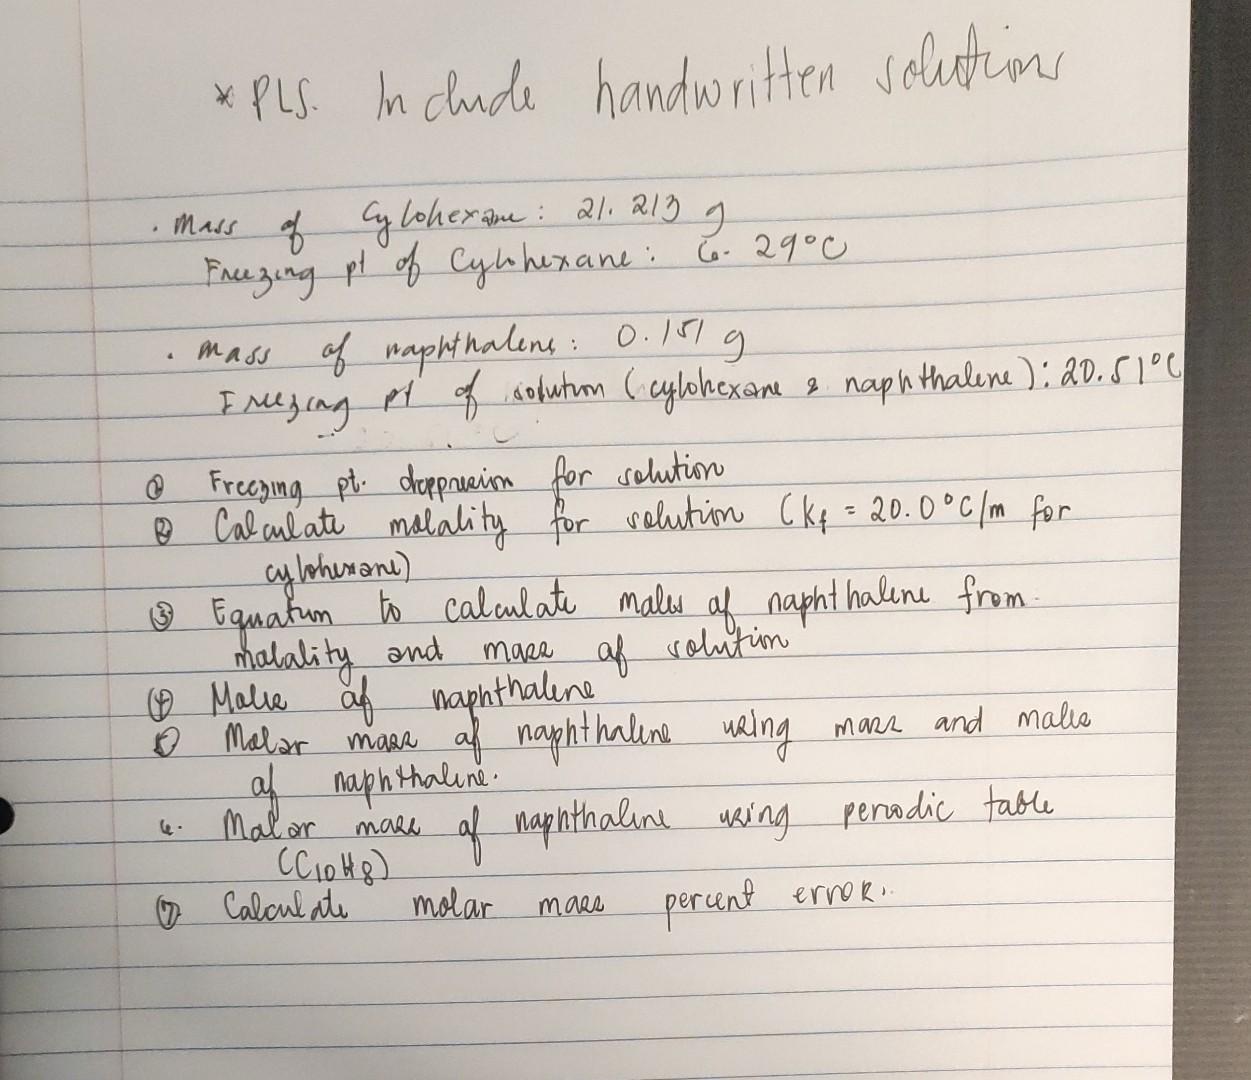 * PLS. Include handwritten solutions
. Mass of Cylohexane: 21.213 g
Freezing pt of Cylohexane: 6.29°C
. mass of naphthalene: 0.151 g
Freezing pt of solution (cylohexane & naphthalene): 20.51°C
① Freezing pt. deppression for solution
② Calculate molality for solution (kf = 20.0°C/m for
cylohexane)
③ Equation to calculate moles of naphthalene from
molality and mass of solution
④ Moles of naphthalene
⑤ Molar mass of naphthalene using mass and moles
of naphthalene.
6. Molar mass of naphthalene using periodic table
(C10H8)
⑦ Calculate molar mass percent error.